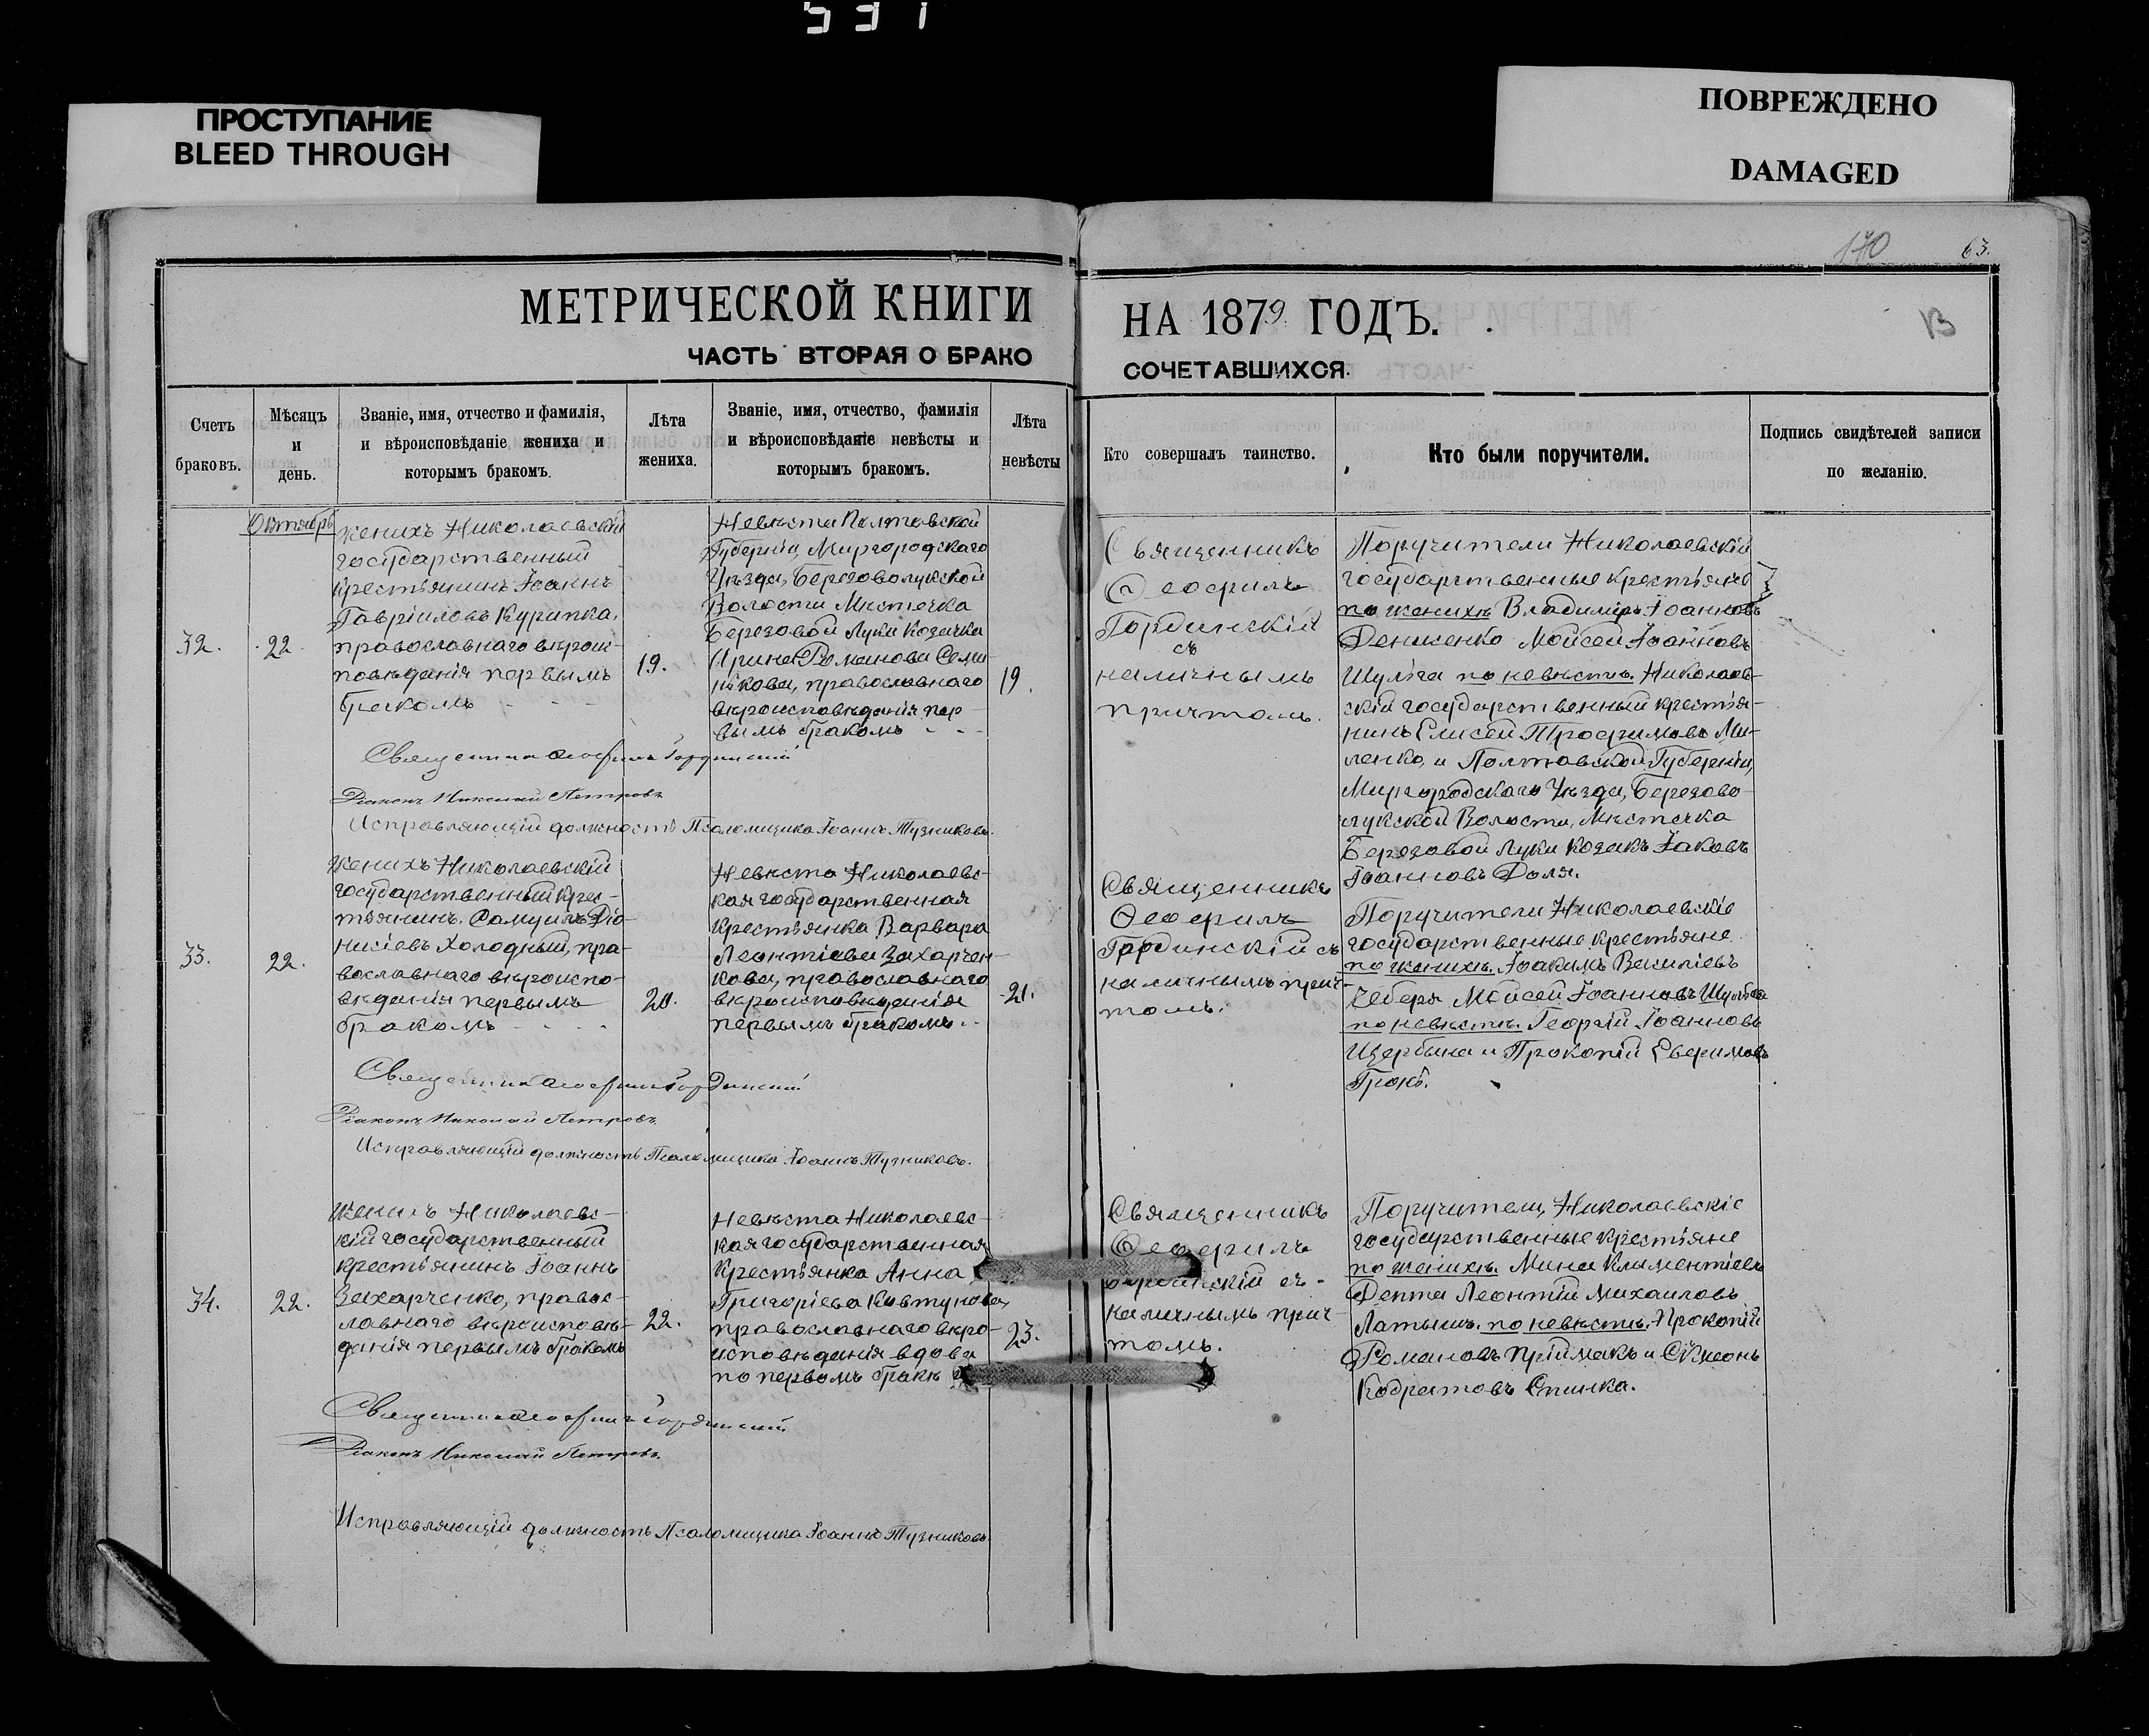 531
ПРОСТУПАНИЕ
BLEED THROUGH
ПОВРЕЖДЕНО
DAMAGED
170
63.
МЕТРИЧЕСКОЙ КНИГИ
НА 1879 ГОДЪ.
ЧАСТЬ ВТОРАЯ О БРАКО
СОЧЕТАВШИХСЯ.
Счетъ
браковъ.
Мѣсяцъ
и
день.
Званіе, имя, отчество и фамилія,
и вѣроисповѣданіе жениха и
которымъ бракомъ.
Лѣта
жениха.
Званіе, имя, отчество, фамилія
и вѣроисповѣданіе невѣсты и
которымъ бракомъ.
Лѣта
невѣсты
Кто совершалъ таинство.
Кто были поручители.
Подпись свидѣтелей записи
по желанію.
Октябрь
32.
22.
Женихъ Николаевскій
государственный
крестьянинъ Іоаннъ
Гавріиловъ Курипка,
православнаго вѣроис-
повѣданія первымъ
бракомъ
19.
Невѣста Полтавской
Губерніи Миргородскаго
Уѣзда, Березоволукской
Волости Мѣстечка
Березовой Луки козачка
Ирина Романова Семи-
нькова, православнаго
вѣроисповѣданія пер-
вымъ бракомъ
19.
Священникъ
Ѳеофилъ
Гординскій
съ
наличнымъ
причтомъ.
Поручители Николаевскій
государственные крестьяне
по женихѣ Владиміръ Іоанновъ
Денисенко Мойсей Іоанновъ
Шульга по невѣстѣ. Николаев-
скій государственный крестья-
нинъ Елисей Трофимовъ Ми-
ленко, и Полтавской Губерніи,
Миргородскаго Уѣзда, Березово-
лукской Волости, Мѣстечка
Березовой Луки козакъ Іаковъ
Іоанновъ Доля.
Священникъ Ѳеофилъ Гординскій
Діаконъ Николай Петровъ
Исправляющій должность Псаломщика Іоаннъ Тузниковъ.
33.
22.
Женихъ Николаевскій
государственный крес-
тьянинъ Самуилъ Діо-
нисіевъ Холодный, пра-
вославнаго вѣроиспо-
вѣданія первымъ
бракомъ
20.
Невѣста Николаевс-
кая государственная
крестьянка Варвара
Леонтіева Захарчен-
кова, православнаго
вѣроисповѣданія
первымъ бракомъ.
21.
Священникъ
Ѳеофилъ
Гординскій съ
наличнымъ прич-
томъ.
Поручители Николаевскіе
государственные крестьяне
по женихѣ. Іоакимъ Василіевъ
Чеберя Мойсей Іоанновъ Шульга
по невѣстѣ. Георгій Іоанновъ
Щербина и Прокопій Евфимовъ
Грокъ.
Священникъ Ѳеофилъ Гординскій
Діаконъ Николай Петровъ
Исправляющій должность Псаломщика Іоаннъ Тузниковъ.
34.
22.
Женихъ Николаевс-
кій государственный
крестьянинъ Іоаннъ
Захарченко, правос-
лавнаго вѣроисповѣ-
данія первымъ бракомъ
22.
Невѣста Николаевс-
кая государственная
крестьянка Анна
Григоріева Ковтунова,
православнаго вѣро-
исповѣданія вдова
по первомъ бракѣ
23.
Священникъ
Ѳеофилъ
Гординскій съ
наличнымъ прич-
томъ.
Поручители, Николаевскіе
государственные крестьяне
по женихѣ. Мина Климентіевъ
Депта Леонтій Михаиловъ
Латышъ. по невѣстѣ. Прокопій
Романовъ Пріймакъ и Сѵмеонъ
Кодратовъ Спинка.
Священникъ Ѳеофилъ Гординскій
Діаконъ Николай Петровъ.
Исправляющій должность Псаломщика Іоаннъ Тузниковъ.